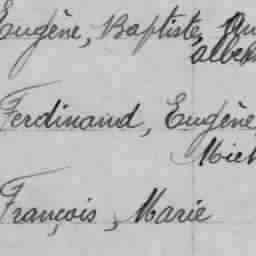 Eugène, Baptiste,
Ferdinand, Eugène,
François, Marie